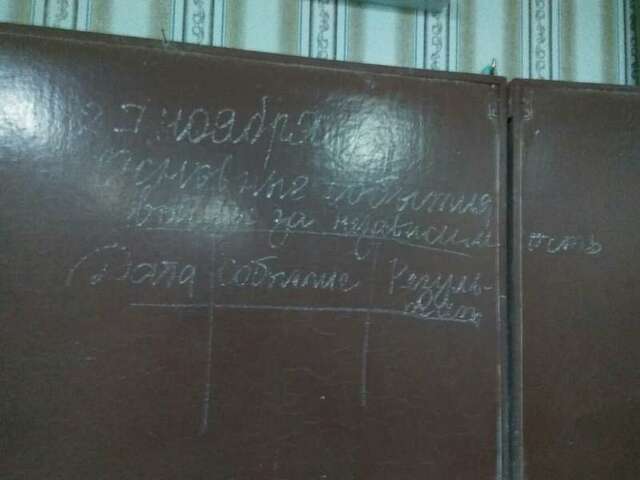 27 ноября
Основные события
войны за независимость
Дата Событие Резуль-
тат